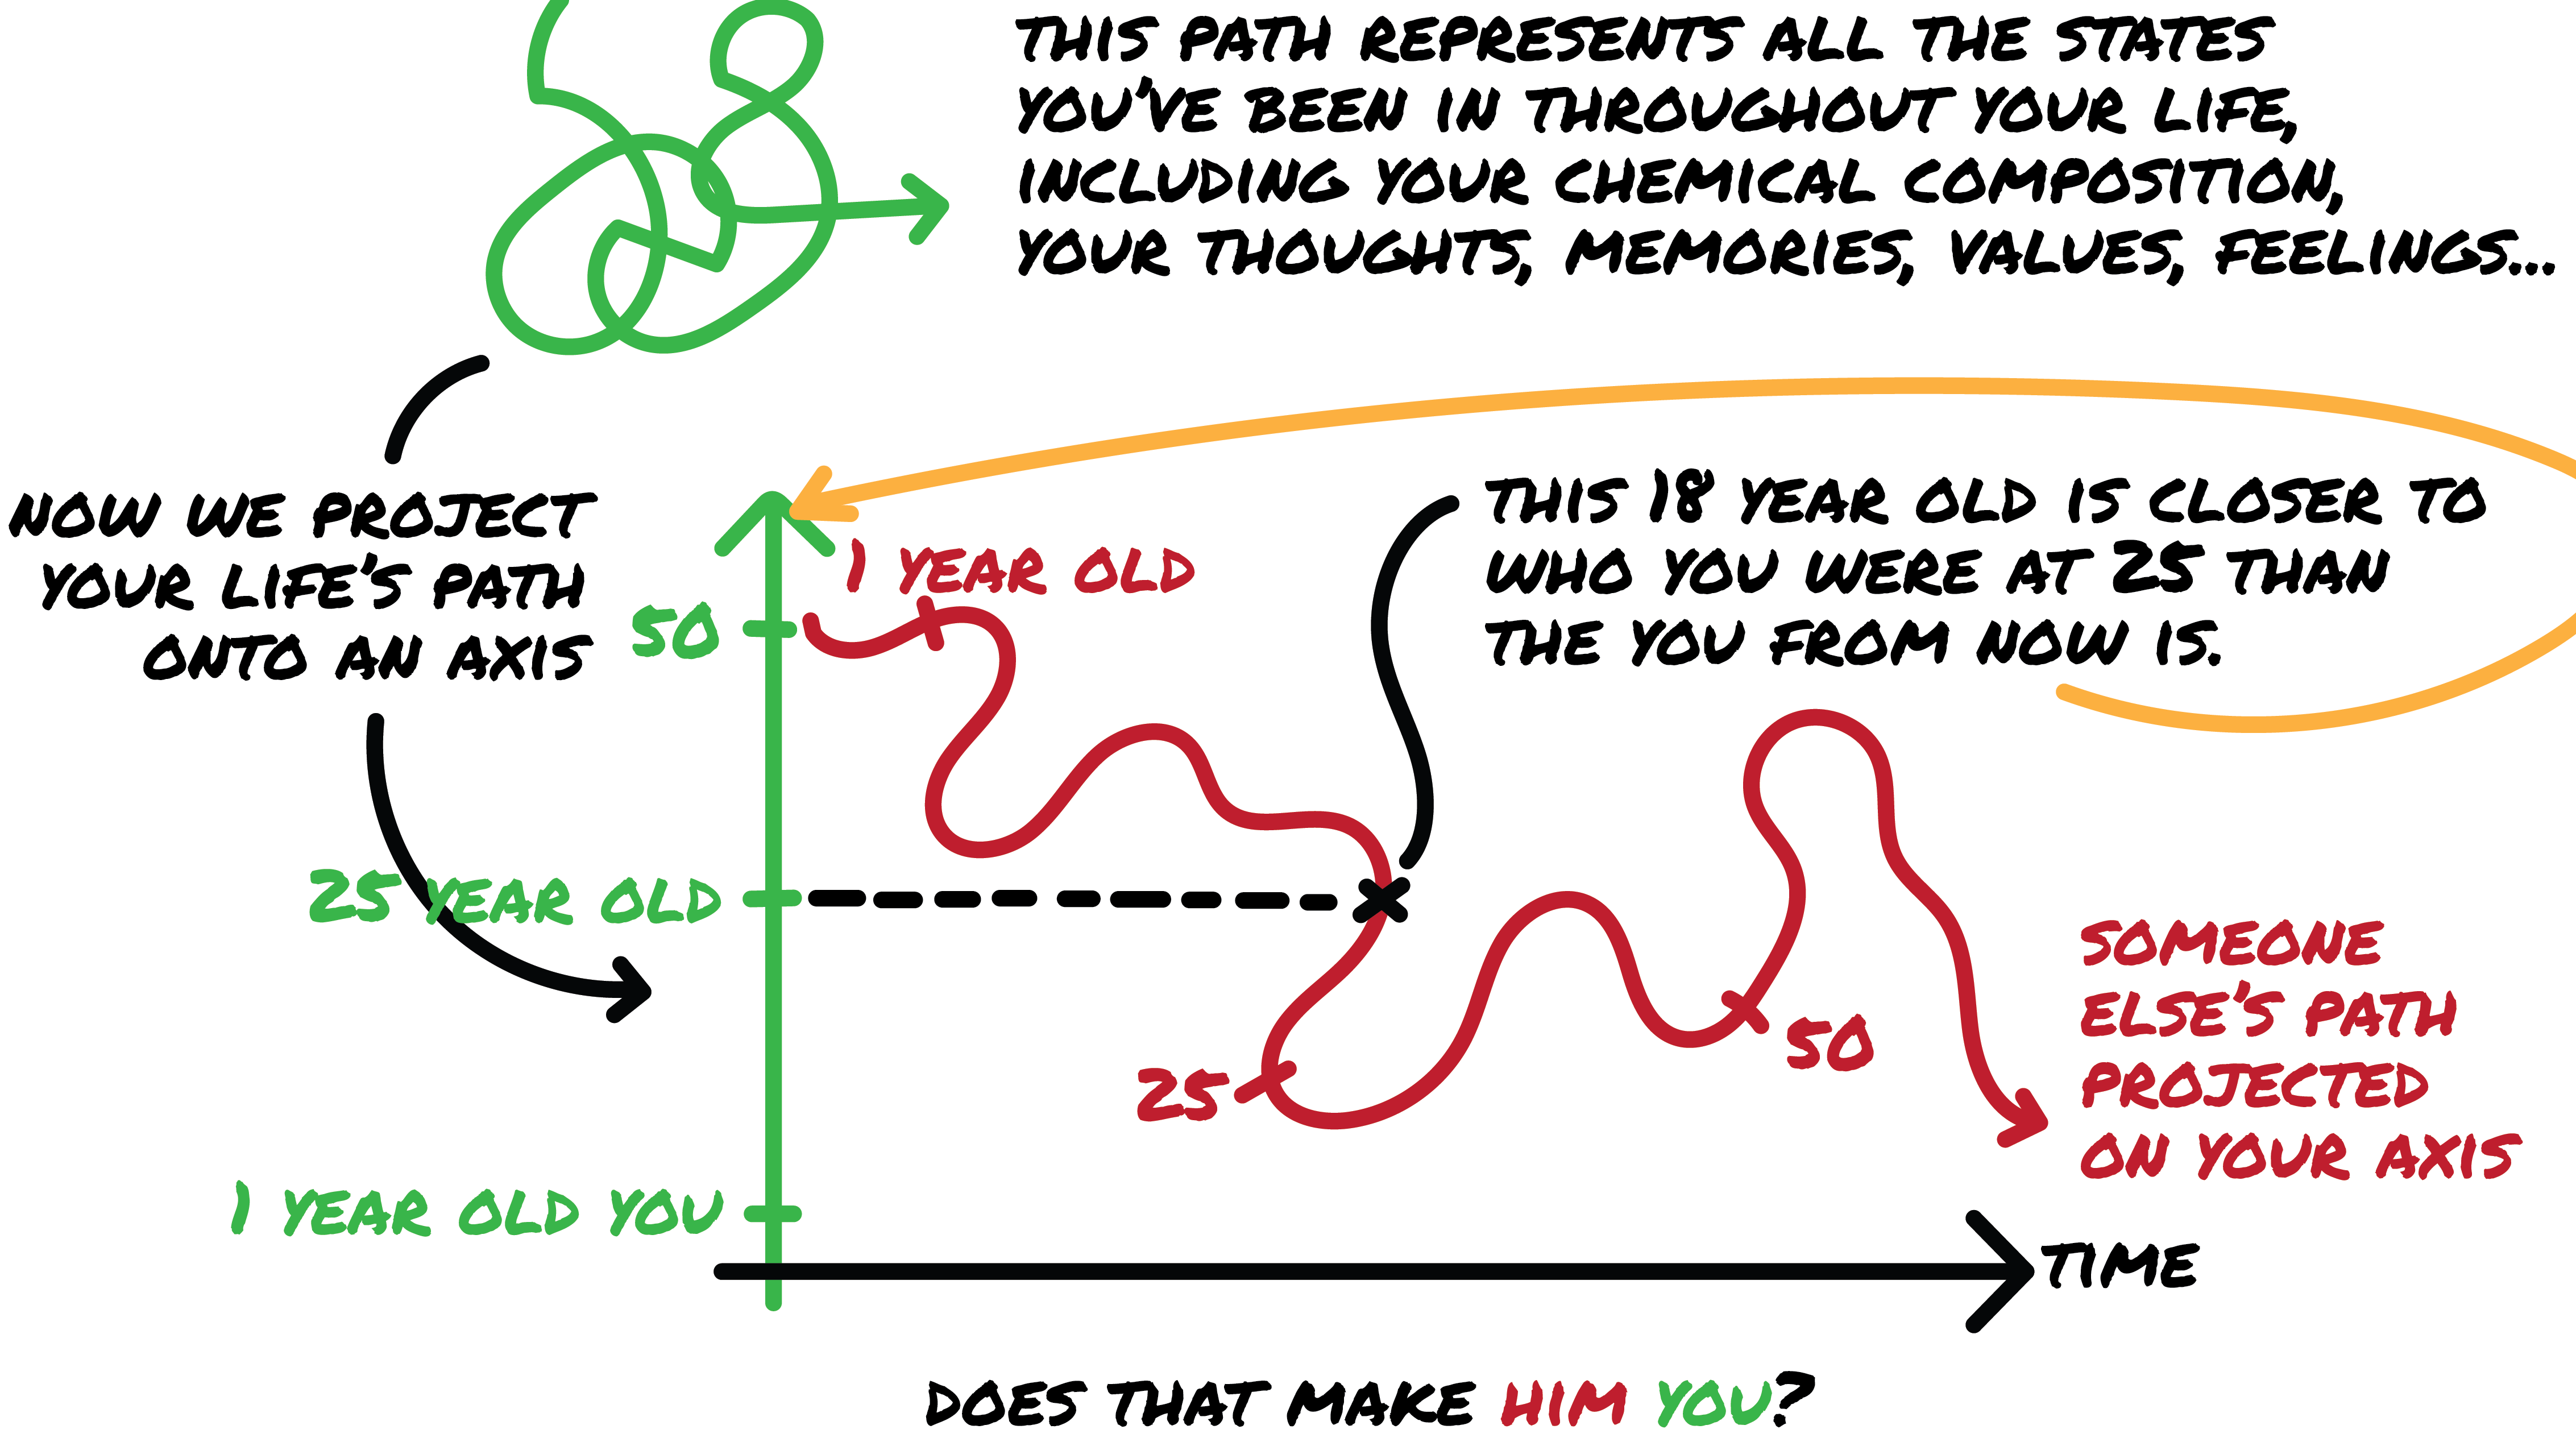 THIS PATH REPRESENTS ALL THE STATES
YOU'VE BEEN IN THROUGHOUT YOUR LIFE,
INCLUDING YOUR CHEMICAL COMPOSITION,
YOUR THOUGHTS, MEMORIES, VALUES, FEELINGS...
NOW WE PROJECT
YOUR LIFE'S PATH
ONTO AN AXIS
THIS 18 YEAR OLD IS CLOSER TO
WHO YOU WERE AT 25 THAN
THE YOU FROM NOW IS.
1 YEAR OLD
50
25 YEAR OLD
1 YEAR OLD YOU
25
50
SOMEONE
ELSE'S PATH
PROJECTED
ON YOUR AXIS
TIME
DOES THAT MAKE HIM YOU?